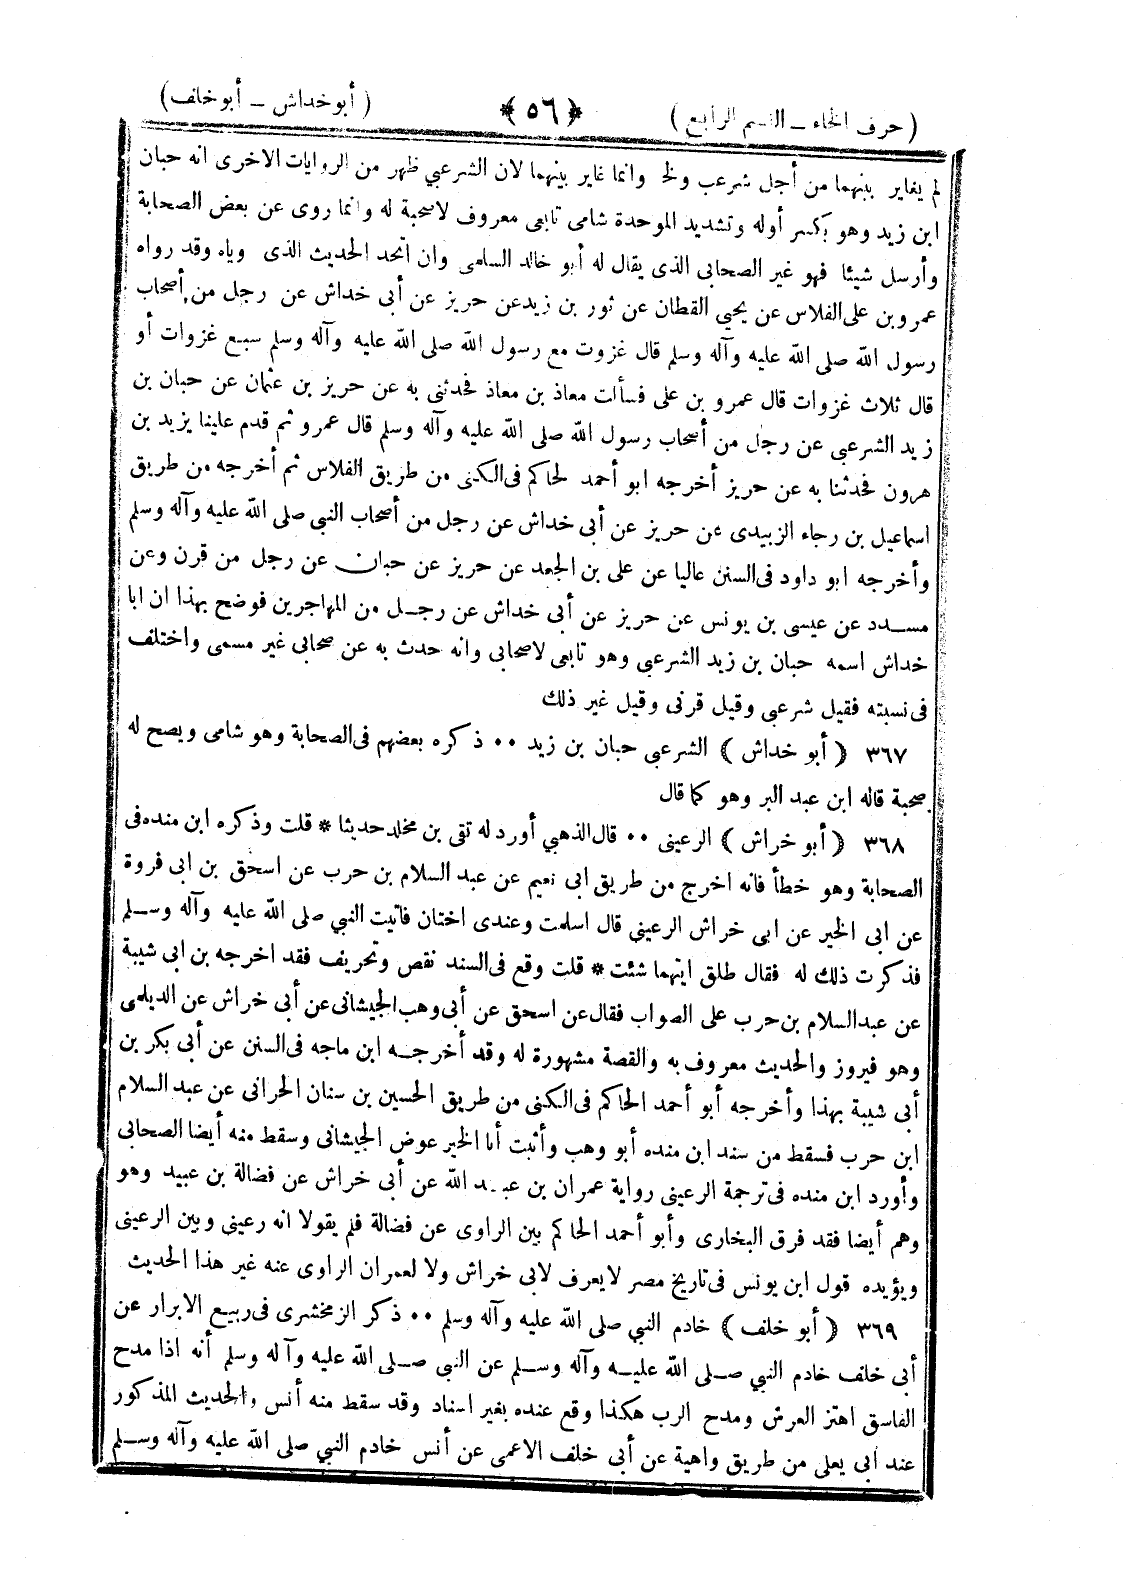 (حرف الخاء ــ القسم الرابع) ﴿٥٦﴾ (أبو خداش ــ أبو خلف)
لم يغاير بينهما من أجل شرعب ولخ وانما غاير بينهما لان الشرعبي ظهر من الروايات الاخرى انه حبان
ابن زيد وهو بكسر أوله وتشديد الموحدة شامى تابعى معروف لاصحبة له وانما روى عن بعض الصحابة
وأرسل شيئا فهو غير الصحابى الذى يقال له أبو خالد السلمى وان اتحد الحديث الذى وياه وقد رواه
عمرو بن على الفلاس عن يحيى القطان عن ثور بن زيدعن حريز عن أبى خداش عن رجل من أصحاب
رسول الله صلى الله عليه وآله وسلم قال غزوت مع رسول الله صلى الله عليه وآله وسلم سبع غزوات أو
قال ثلاث غزوات قال عمرو بن على فسألت معاذ بن معاذ فحدثنى به عن حريز بن عثمان عن حبان بن
زيد الشرعبي عن رجل من أصحاب رسول الله صلى الله عليه وآله وسلم قال عمرو ثم قدم علينا يزيد بن
هرون فحدثنا به عن حريز أخرجه ابو أحمد لحاكم فى الكنى من طريق الفلاس ثم أخرجه من طريق
اسماعيل بن رجاء الزبيدى عن حريز عن أبى خداش عن رجل من أصحاب النبي صلى الله عليه وآله وسلم
وأخرجه ابو داود فى السنن عاليا عن على بن الجعد عن حريز عن حبان عن رجل من قرن وعن
مسدد عن عيسى بن يونس عن حريز عن أبى خداش عن رجل من المهاجرين فوضح بهذا ان ابا
خداش اسمه حبان بن زيد الشرعبي وهو تابعى لاصحابى وانه حدث به عن صحابى غير مسمى واختلف
فى نسبته فقيل شرعبي وقيل قرنى وقيل غير ذلك
٣٦٧ (أبو خداش) الشرعبي حبان بن زيد ٠٠ ذكره بعضهم فى الصحابة وهو شامى ويصح له
صحبة قاله ابن عبد البر وهو كما قال
٣٦٨ (أبو خراش) الرعينى ٠٠ قال الذهبي أورد له تقى بن مخلد حديثا * قلت وذكره ابن منده فى
الصحابة وهو خطأ فانه اخرج من طريق ابى نعيم عن عبد السلام بن حرب عن اسحق بن ابى فروة
عن ابى الخير عن ابى خراش الرعينى قال اسلمت وعندى اختان فاتيت النبي صلى الله عليه وآله وسلم
فذكرت ذلك له فقال طلق ايتهما شئت * قلت وقع فى السند نقص وتحريف فقد اخرجه بن ابى شيبة
عن عبدالسلام بن حرب على الصواب فقال عن اسحق عن أبى وهب الجيشانى عن أبى خراش عن الديلمى
وهو فيروز والحديث معروف به والقصة مشهورة له وقد أخرجه ابن ماجه فى السنن عن أبى بكر بن
أبى شيبة بهذا وأخرجه أبو أحمد الحاكم فى الكنى من طريق الحسين بن سنان الحرانى عن عبد السلام
ابن حرب فسقط من سند ابن منده أبو وهب وأثبت أبا الخير عوض الجيشانى وسقط منه أيضا الصحابى
وأورد ابن منده فى ترجمة الرعينى رواية عمران بن عبد الله عن أبى خراش عن فضالة بن عبيد وهو
وهم أيضا فقد فرق البخارى وأبو أحمد الحاكم بين الراوى عن فضالة فلم يقولا انه رعينى وبين الرعينى
ويؤيده قول ابن يونس فى تاريخ مصر لايعرف لابى خراش ولا لعمران الراوى عنه غير هذا الحديث
٣٦٩ (أبو خلف) خادم النبي صلى الله عليه وآله وسلم ٠٠ ذكر الزمخشرى فى ربيع الابرار عن
أبى خلف خادم النبي صلى الله عليه وآله وسلم عن النبي صلى الله عليه وآله وسلم أنه اذا مدح
الفاسق اهتز العرش ومدح الرب هكذا وقع عنده بغير اسناد وقد سقط منه أنس والحديث المذكور
عند أبى يعلى من طريق واهية عن أبى خلف الاعمى عن أنس خادم النبي صلى الله عليه وآله وسلم